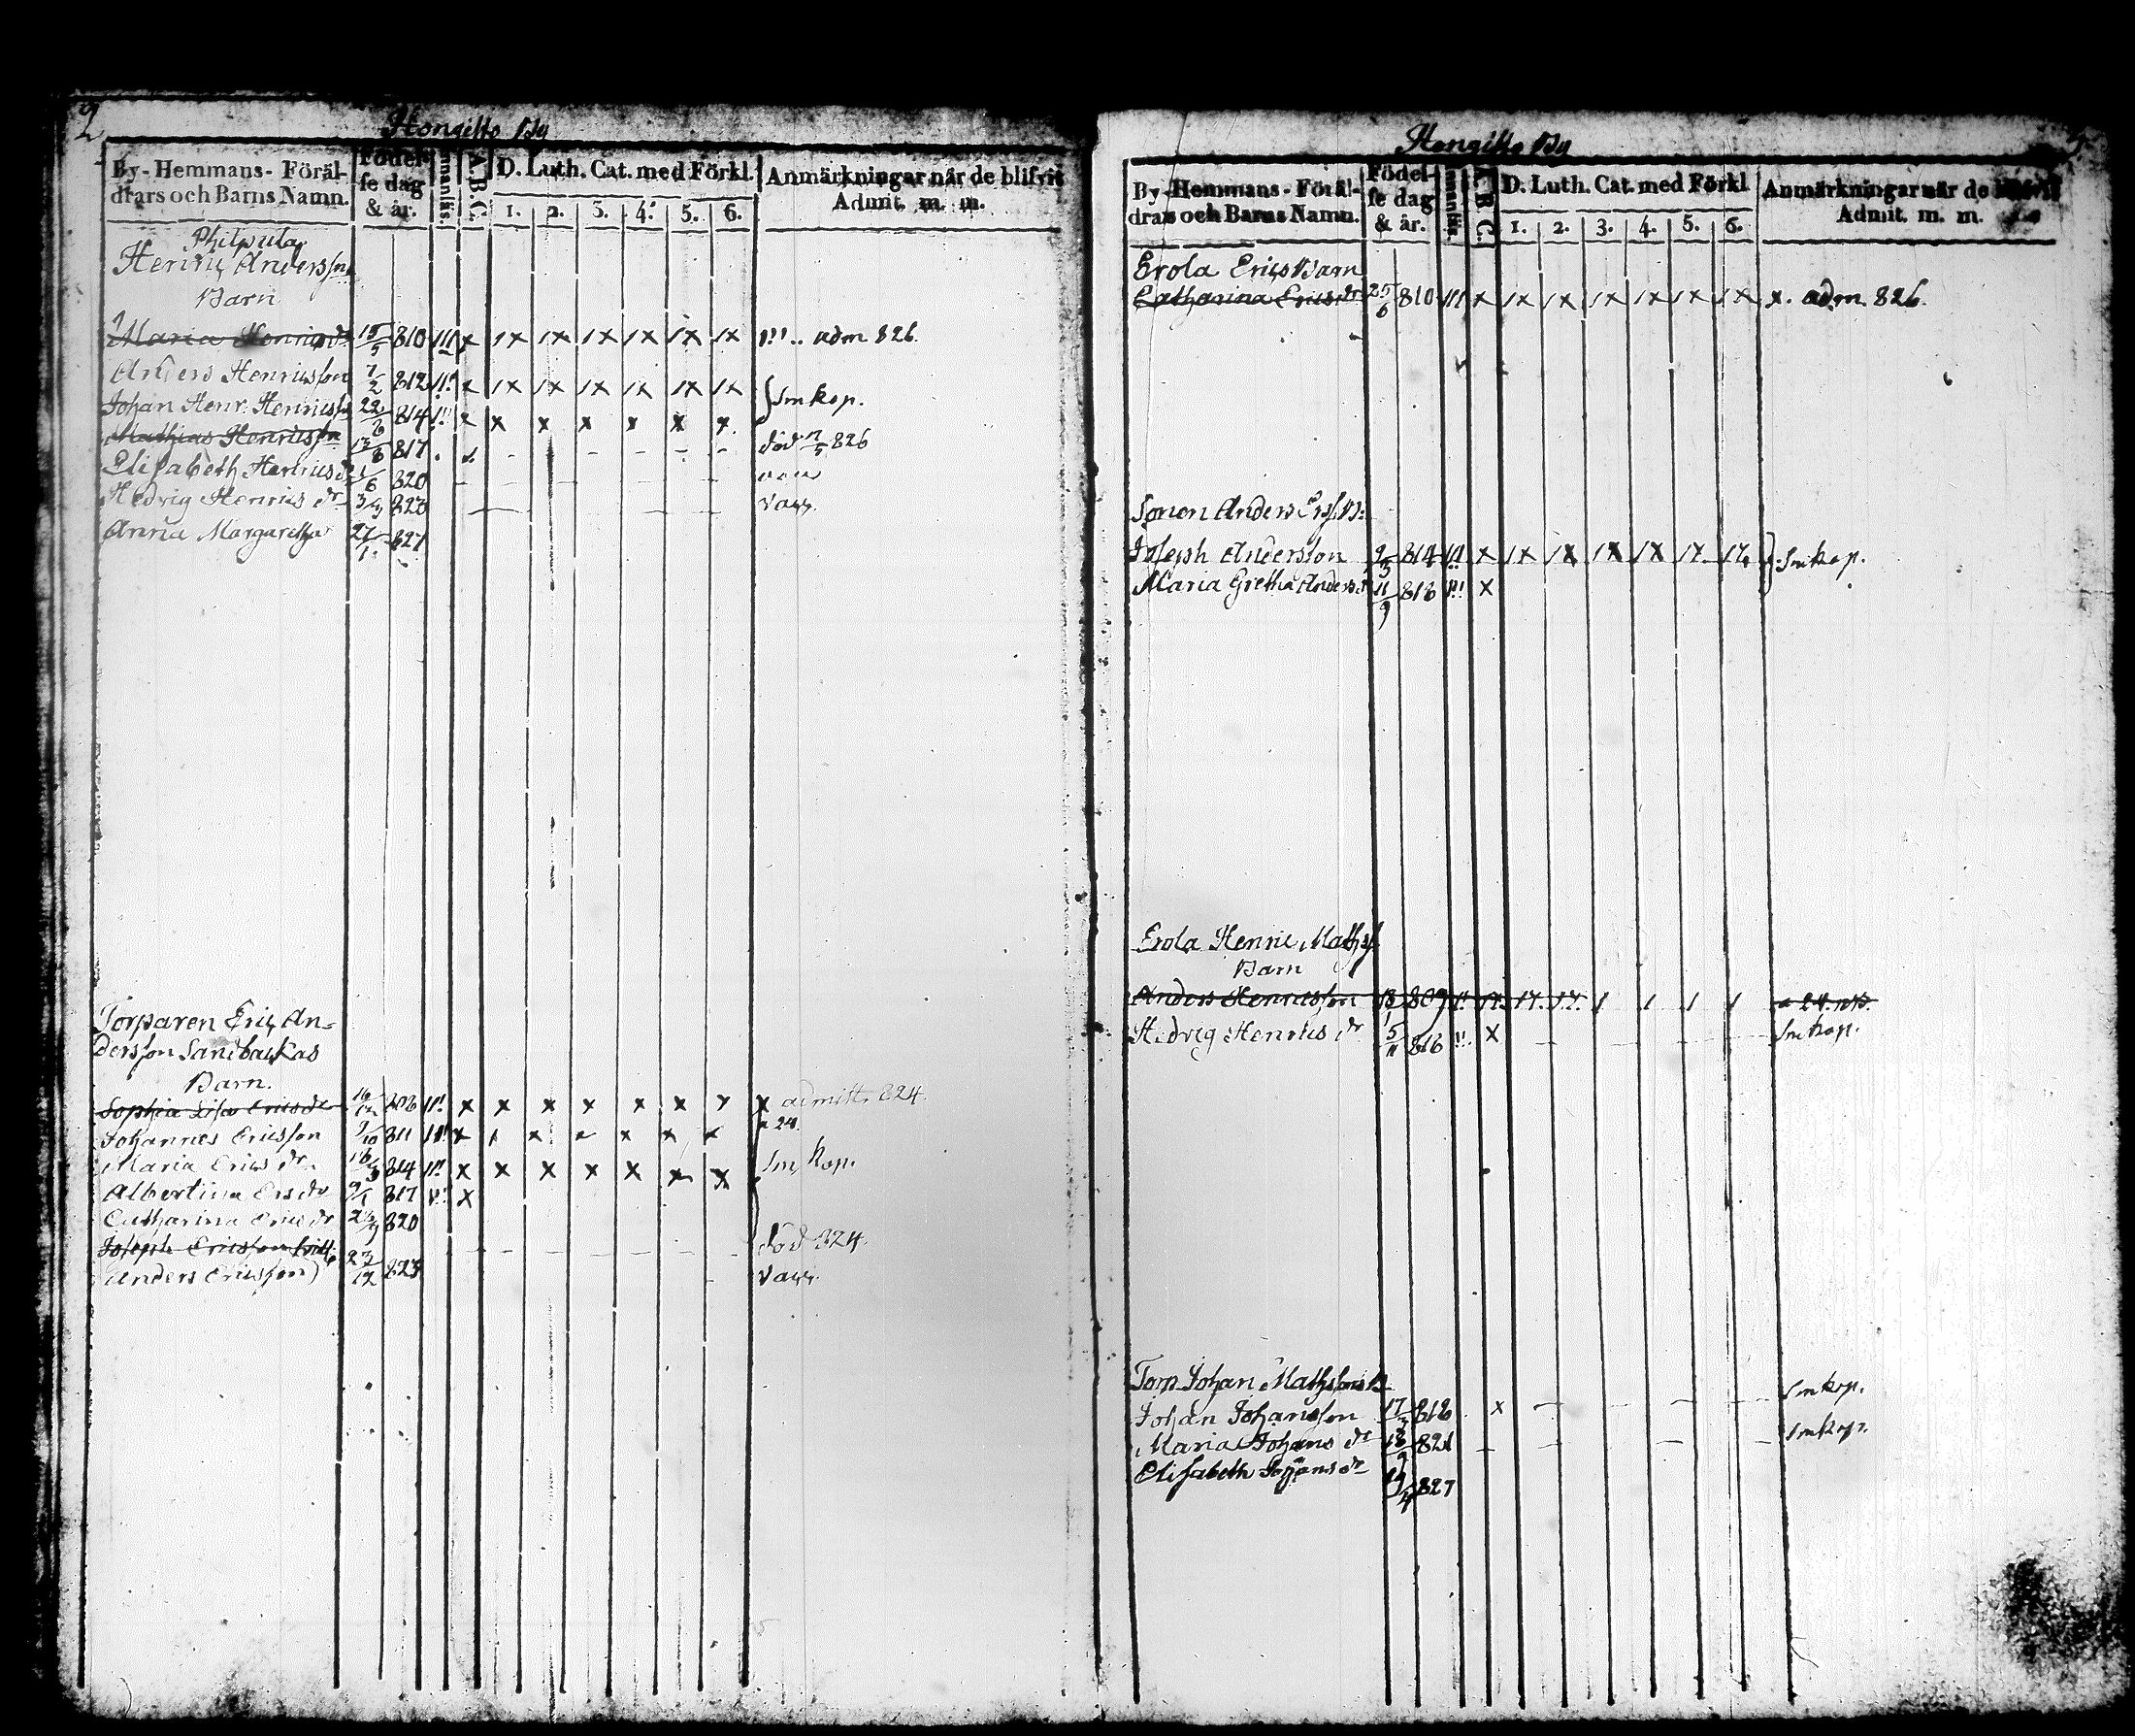 2
Hongitto By
By-Hemmans-Föräl-
drars och Barns Namn.
Födel-
se dag
& år.
A.B.C.
D. Luth. Cat. med Förkl.
1. 2. 3. 4. 5. 6.
Anmärkningar när de blifvit
Admit. m. m.
Philpula
Henric Andersson
Barn
Maria Henricsdr 15/5 810 x 1x 1x 1x 1x 1x 1x adm 826.
Anders Henricsson 7/2 812 x 1x 1x 1x 1x 1x 1x
Johan Henr. Henricss 22/6 814 x x x x x x x Smkop.
Mathias Henricsson 13/8 817 död 17/5 826
Elisabeth Henricsdr /6 820
Hedvig Henrics dr 3/9 823 Vacc.
Anna Margaretha 27/1 827
Torparen Eric An-
dersson Sandbackas
Barn.
Sophia Lisa Ericsdr 16/12 808 x x x x x x x x admitt. 824.
Johannes Ericsson 9/10 811 24.
Maria Erics dr. 16/3 814 x x x x x x x Smkop.
Albertina Ersdr 9/1 817 x
Catharina Erics dr 820
Joseph Ericsson död 824.
Anders Ericsson) 23/12 823 Vacc.
Hongitto By
By-Hemmans-Föräl-
drars och Barns Namn.
Födel-
se dag
& år.
A.B.C.
D. Luth. Cat. med Förkl
1. 2. 3. 4. 5. 6.
Anmärkningar när de
Admit. m. m.
Erola Erics Barn
Catharina Ericsdr 25/6 810 x 1x 1x 1x 1x 1x 1x x. adm 826.
Sonen Anders Erss. B:
Joseph Andersson 9/3 814 x 1x 1x 1x 1x 1x 1x Smkop.
Maria Gretha Anders d 11/9 818 x
Erola Henric Mathss.
Barn
Anders Henricsson 13/1 809
Hedvig Henrics dr 5/11 818 x Smkop.
Torp. Johan Mathssons B
Johan Johansson 17/3 818 x Smkop.
Maria Johans dr 18/9 821 Smkop.
Elisabeth Johansdr 19/4 827